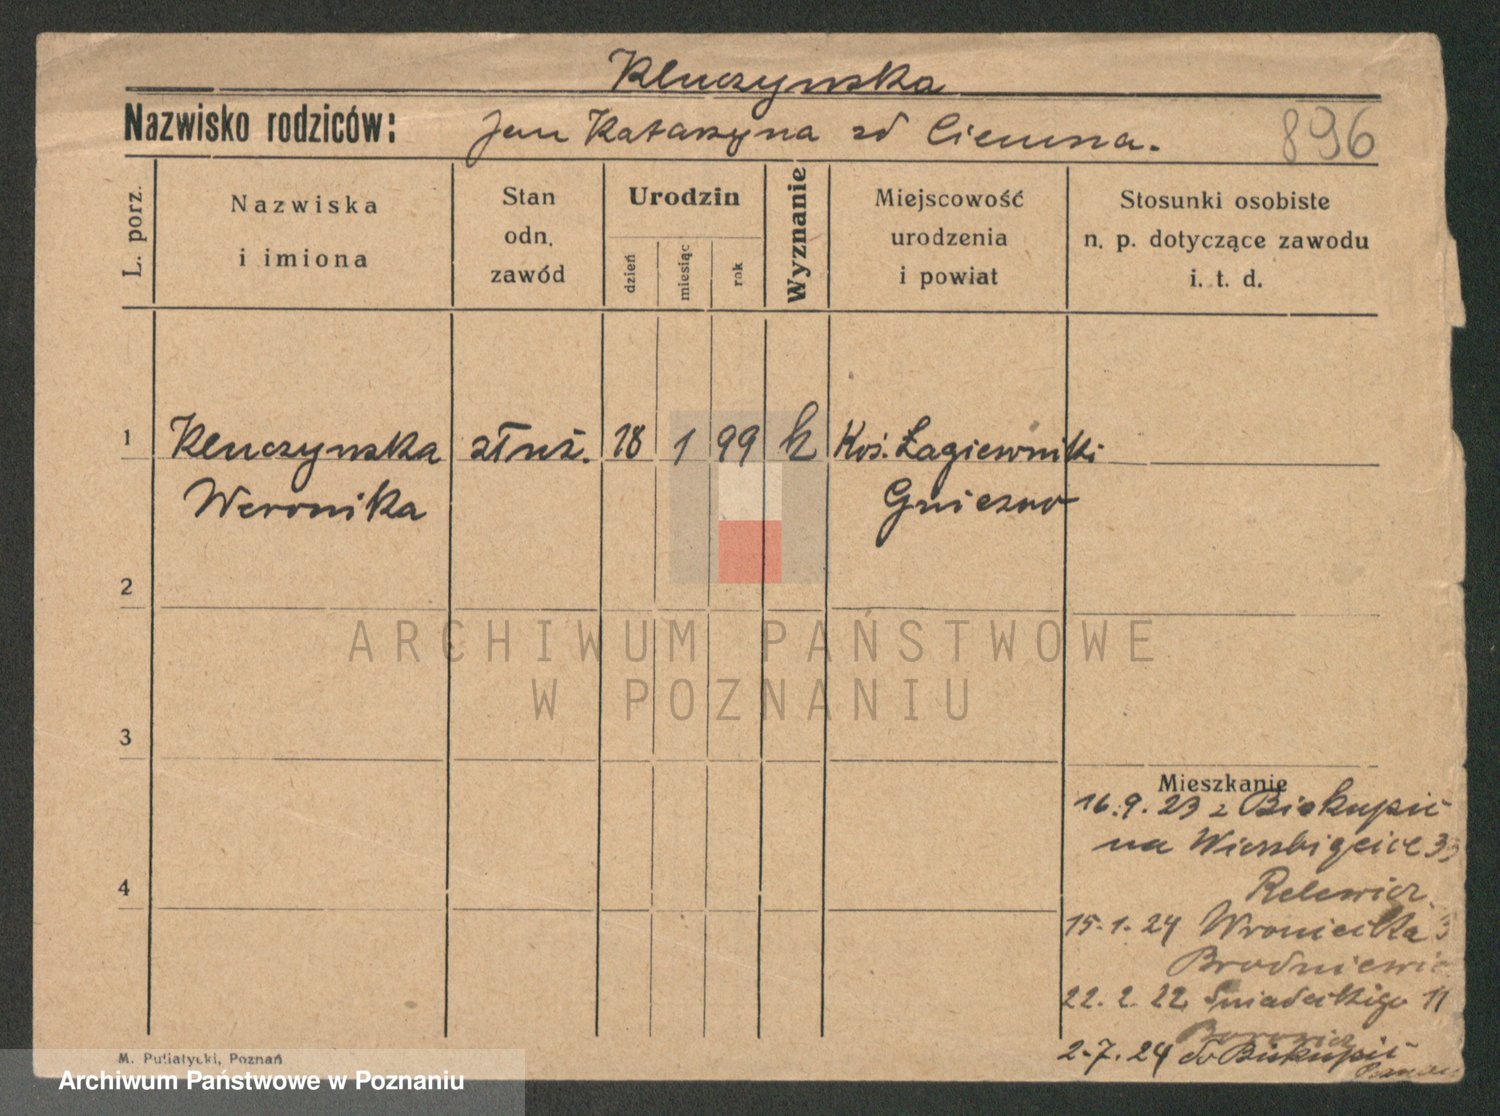 Kluczynska
Nazwisko rodziców: Jan Katarzyna zd Ciemna. 896
L. porz.
Nazwiska
i imiona
Stan
odn.
zawód
Urodzin
dzień
miesiąc
rok
Wyznanie
Miejscowość
urodzenia
i powiat
Stosunki osobiste
n. p. dotyczące zawodu
i. t. d.
1 Kluczynska służ. 18 1 99 k Koś. Łagiewniki
Weronika Gniezno
2
ARCHIWUM PAŃSTWOWE
W POZNANIU
3
Mieszkanie
16.9.23 z Biskupic
na Wierzbięcice 33
Relewicz
15.1.24 Wroniecka 3
Brodniewic
22.2.22 Śniadeckigo 11
2.7.24 do Biskupic
4
M. Putiatycki, Poznań
Archiwum Państwowe w Poznaniu